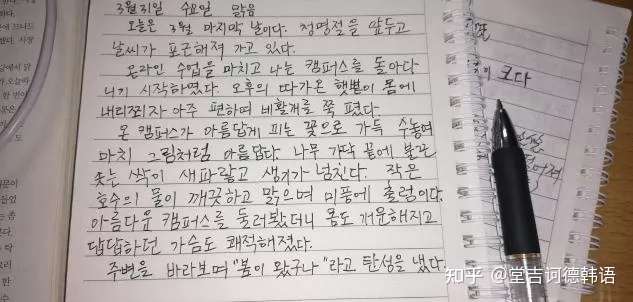 3월 31일 수요일 맑음
오늘은 3월 마지막 날이다. 청명절을 앞두고
날씨가 포근해져 가고 있다.
온라인 수업을 마치고 나는 캠퍼스를 돌아다
니기 시작하였다 오후의 따가운 햇볕이 몸에
내리쬐자 아주 편하여 네활개를 쭉 폈다
온 캠퍼스가 아름답게 피는 꽃으로 가득 수놓여
마치 그림처럼 아름답다. 나무 가닥 끝에 불끈
솟는 싹이 새파랗고 생기가 넘친다. 작은
호수의 물이 깨끗하고 맑으며 미풍에 출렁이다.
아름다운 캠퍼스를 둘러봤더니 몸도 거뿐해지고
답답하던 가슴도 쾌적해졌다.
주변을 바라보며 "봄이 왔구나"라고 탄성을 냈다.
크다
知乎 @堂吉诃德韩语